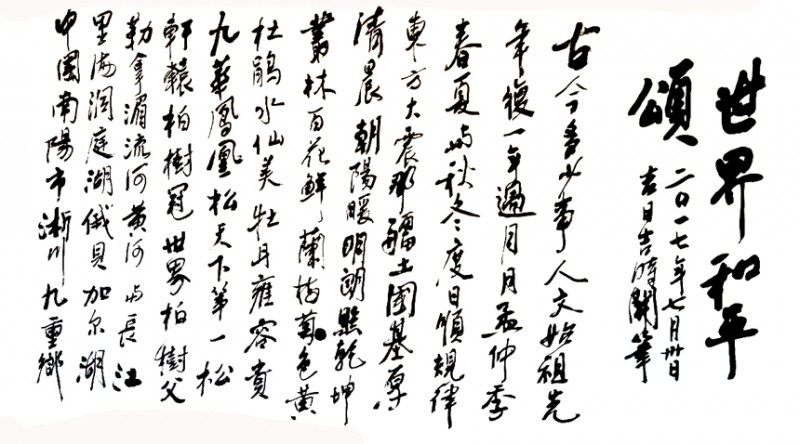 世界和平
頌
二〇一七年七月卅日
吉日吉時開筆
古今多少事人文始祖先
年復一年過月月孟仲季
春夏与秋冬度日順規律
東方大震那疆土国基厚
清晨朝陽暖明朗照乾坤
叢林百花鮮蘭梅菊色黄
杜鵑水仙美牡丹雍容貴
九華鳳凰松天下第一松
軒轅柏樹冠世界柏樹父
勒拿湄流河黄河与長江
里海洞庭湖俄貝加尔湖
中国南陽市淅川九重鄉